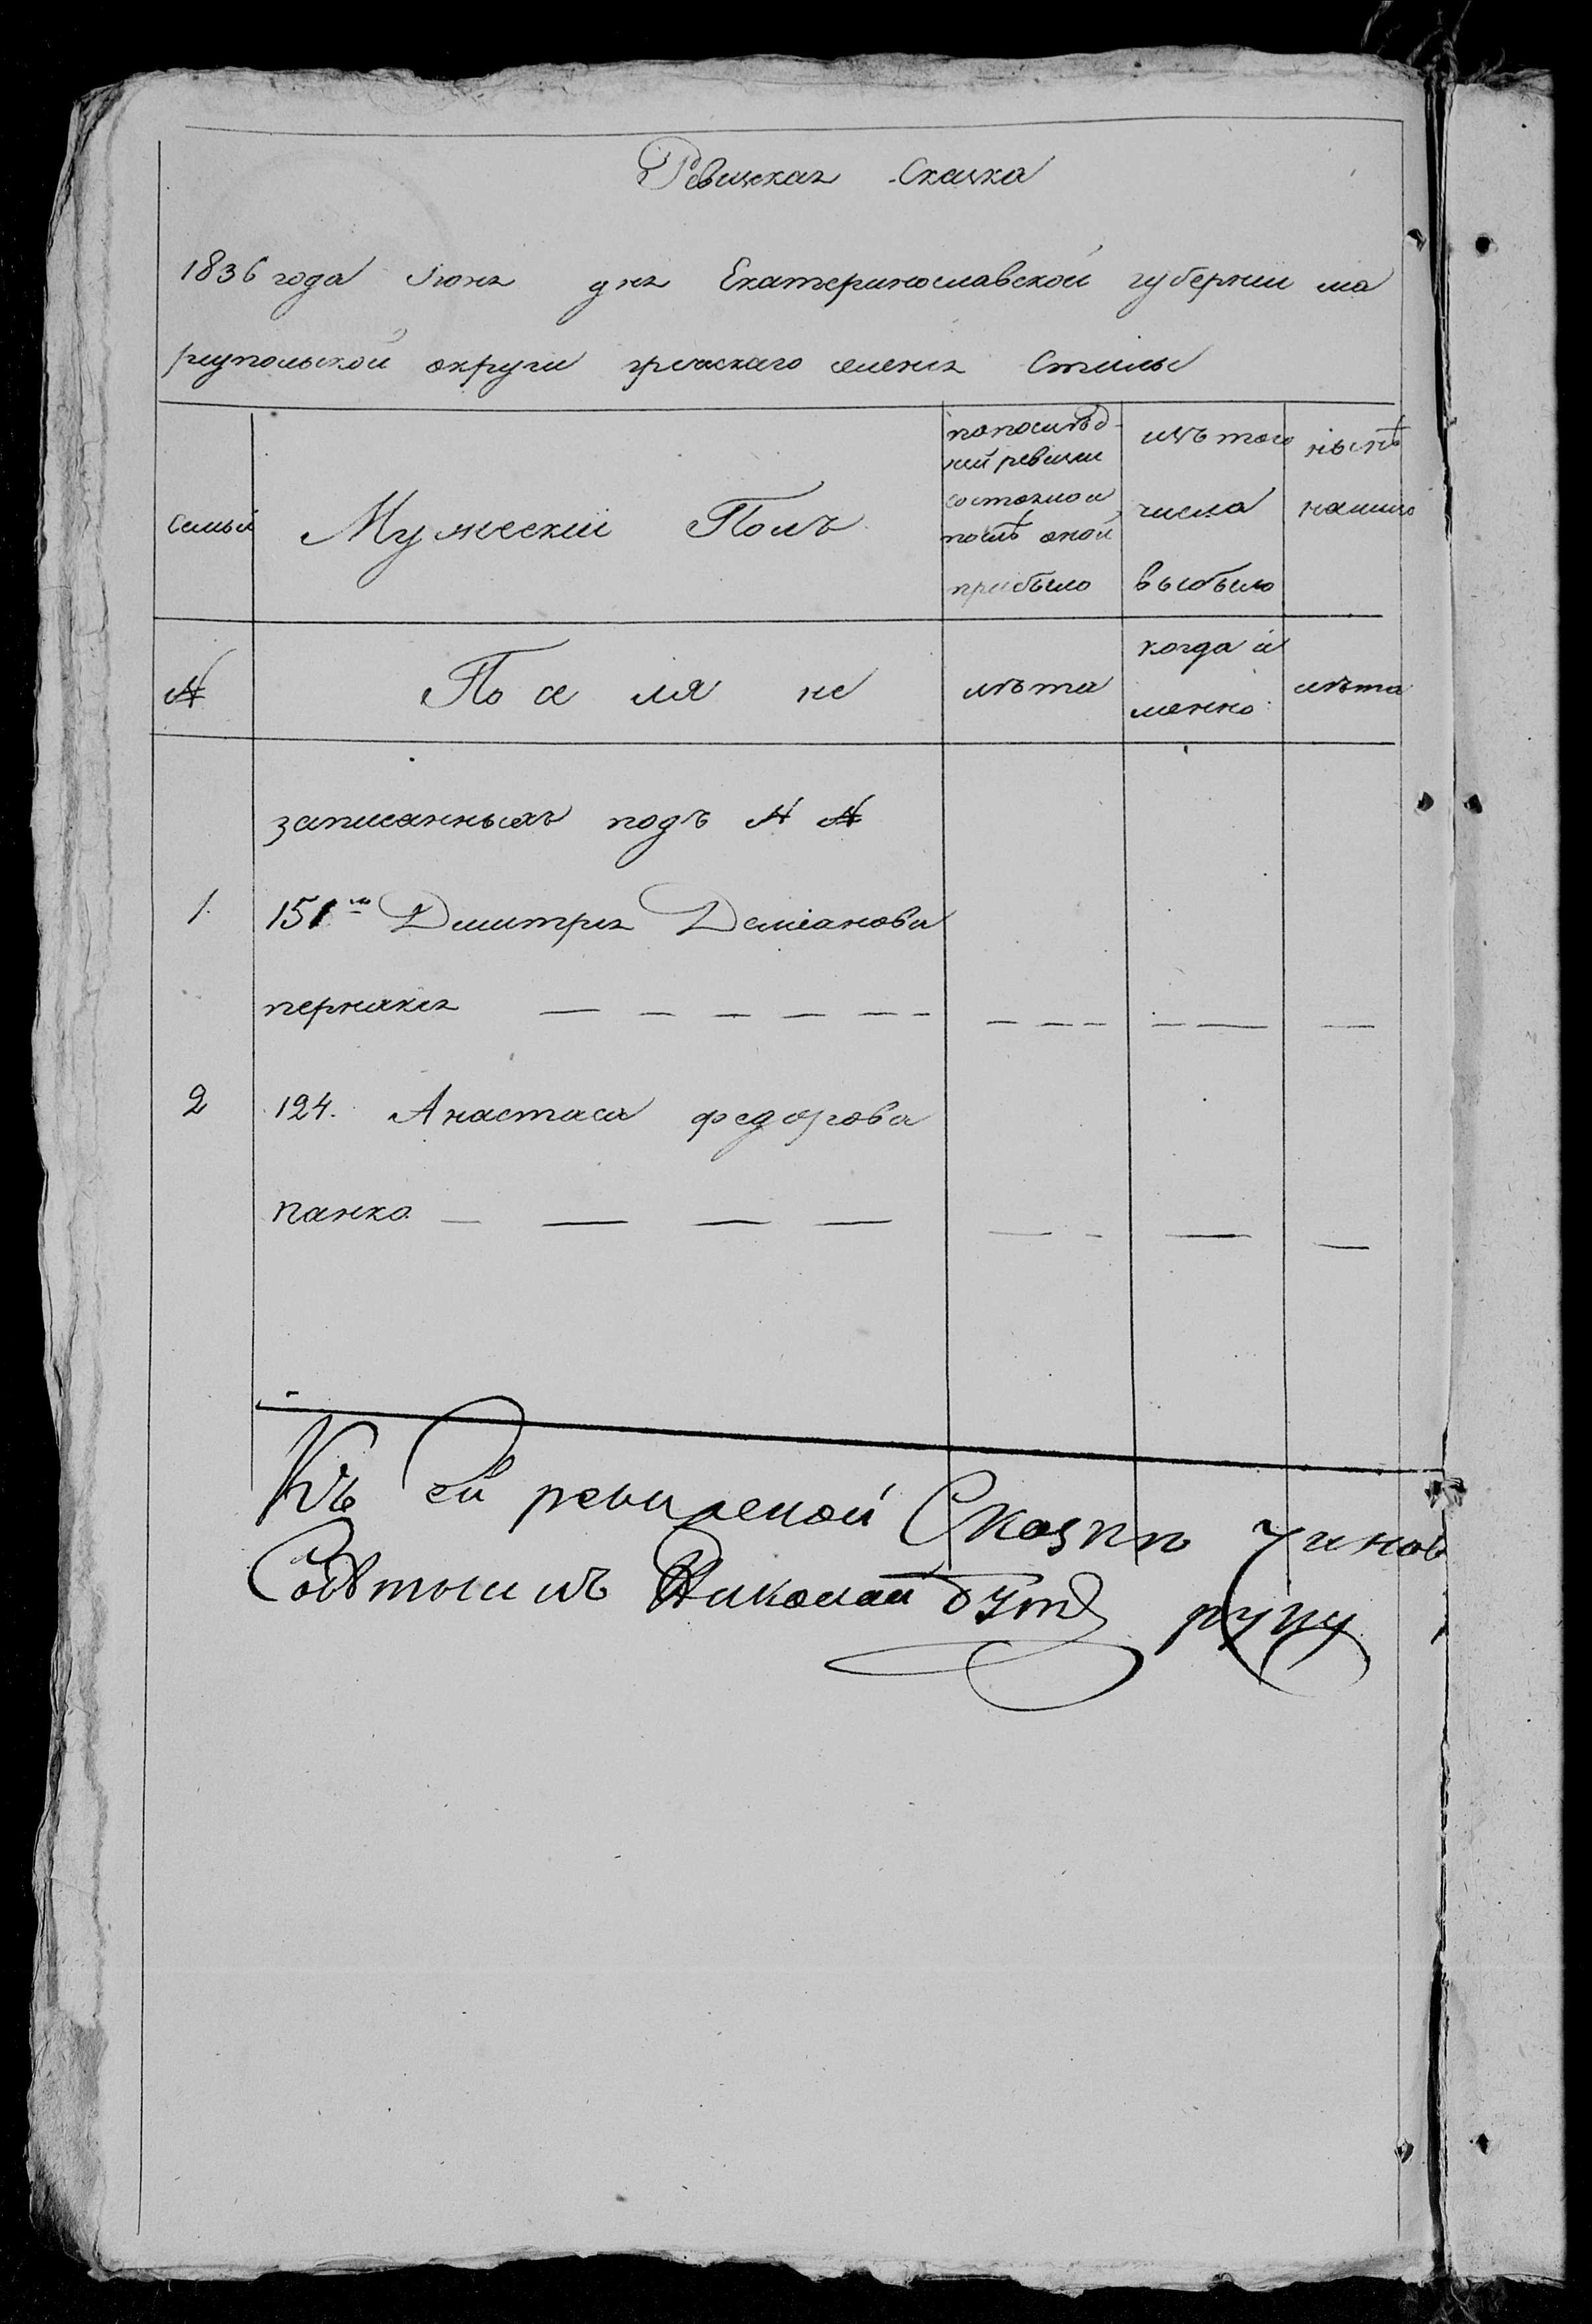 Ревизская Сказка
1836 года июня дня Екатеринославской губернии ма
риупольской округи греческаго селения Стилы
семьи
Мужеский Полъ
по послѣд
ней ревизии
состояло и
послѣ оной
прибыло
изъ того
числа
выбыло
нынѣ
на лицо
№
Поселяне
лѣта
когда и
менно
лѣта
записанныхъ подъ № №
1. 151м Дмитрия Демианова
перчакия
2 124. Анастаса федорова
панко
Къ сей ревизской Сказки
Николай руку